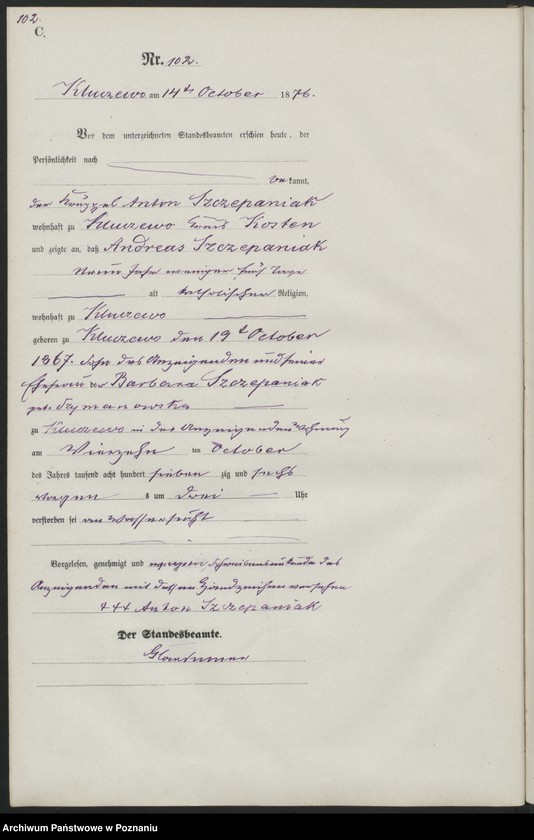 102.
C.
Nr. 102.
Kluczewo am 14ten October 1876.
Vor dem unterzeichneten Standesbeamten erschien heute, der
Persönlichkeit nach
bekannt,
der Anton Szczepaniak
wohnhaft zu Kluczewo Kreis Kosten
und zeigte an, daß Andreas Szczepaniak
Neun Jahr weniger fünf Tage
alt katholischer Religion,
wohnhaft zu Kluczewo
geboren zu Kluczewo den 19t October
1867. Sohn des Anzeigenden und seiner
Ehefrau der Barbara Szczepaniak
geb. Szymanowska
zu Kluczewo in des Anzeigenden Wohnung
am Vierzehn ten October
des Jahres tausend acht hundert sieben zig und sechs
s um drei Uhr
verstorben sei an Wassersucht
Vorgelesen, genehmigt und wegen Schreibensunkunde des
Anzeigenden mit dessen Handzeichen versehen
+++ Anton Szczepaniak
Der Standesbeamte.
Archiwum Państwowe w Poznaniu